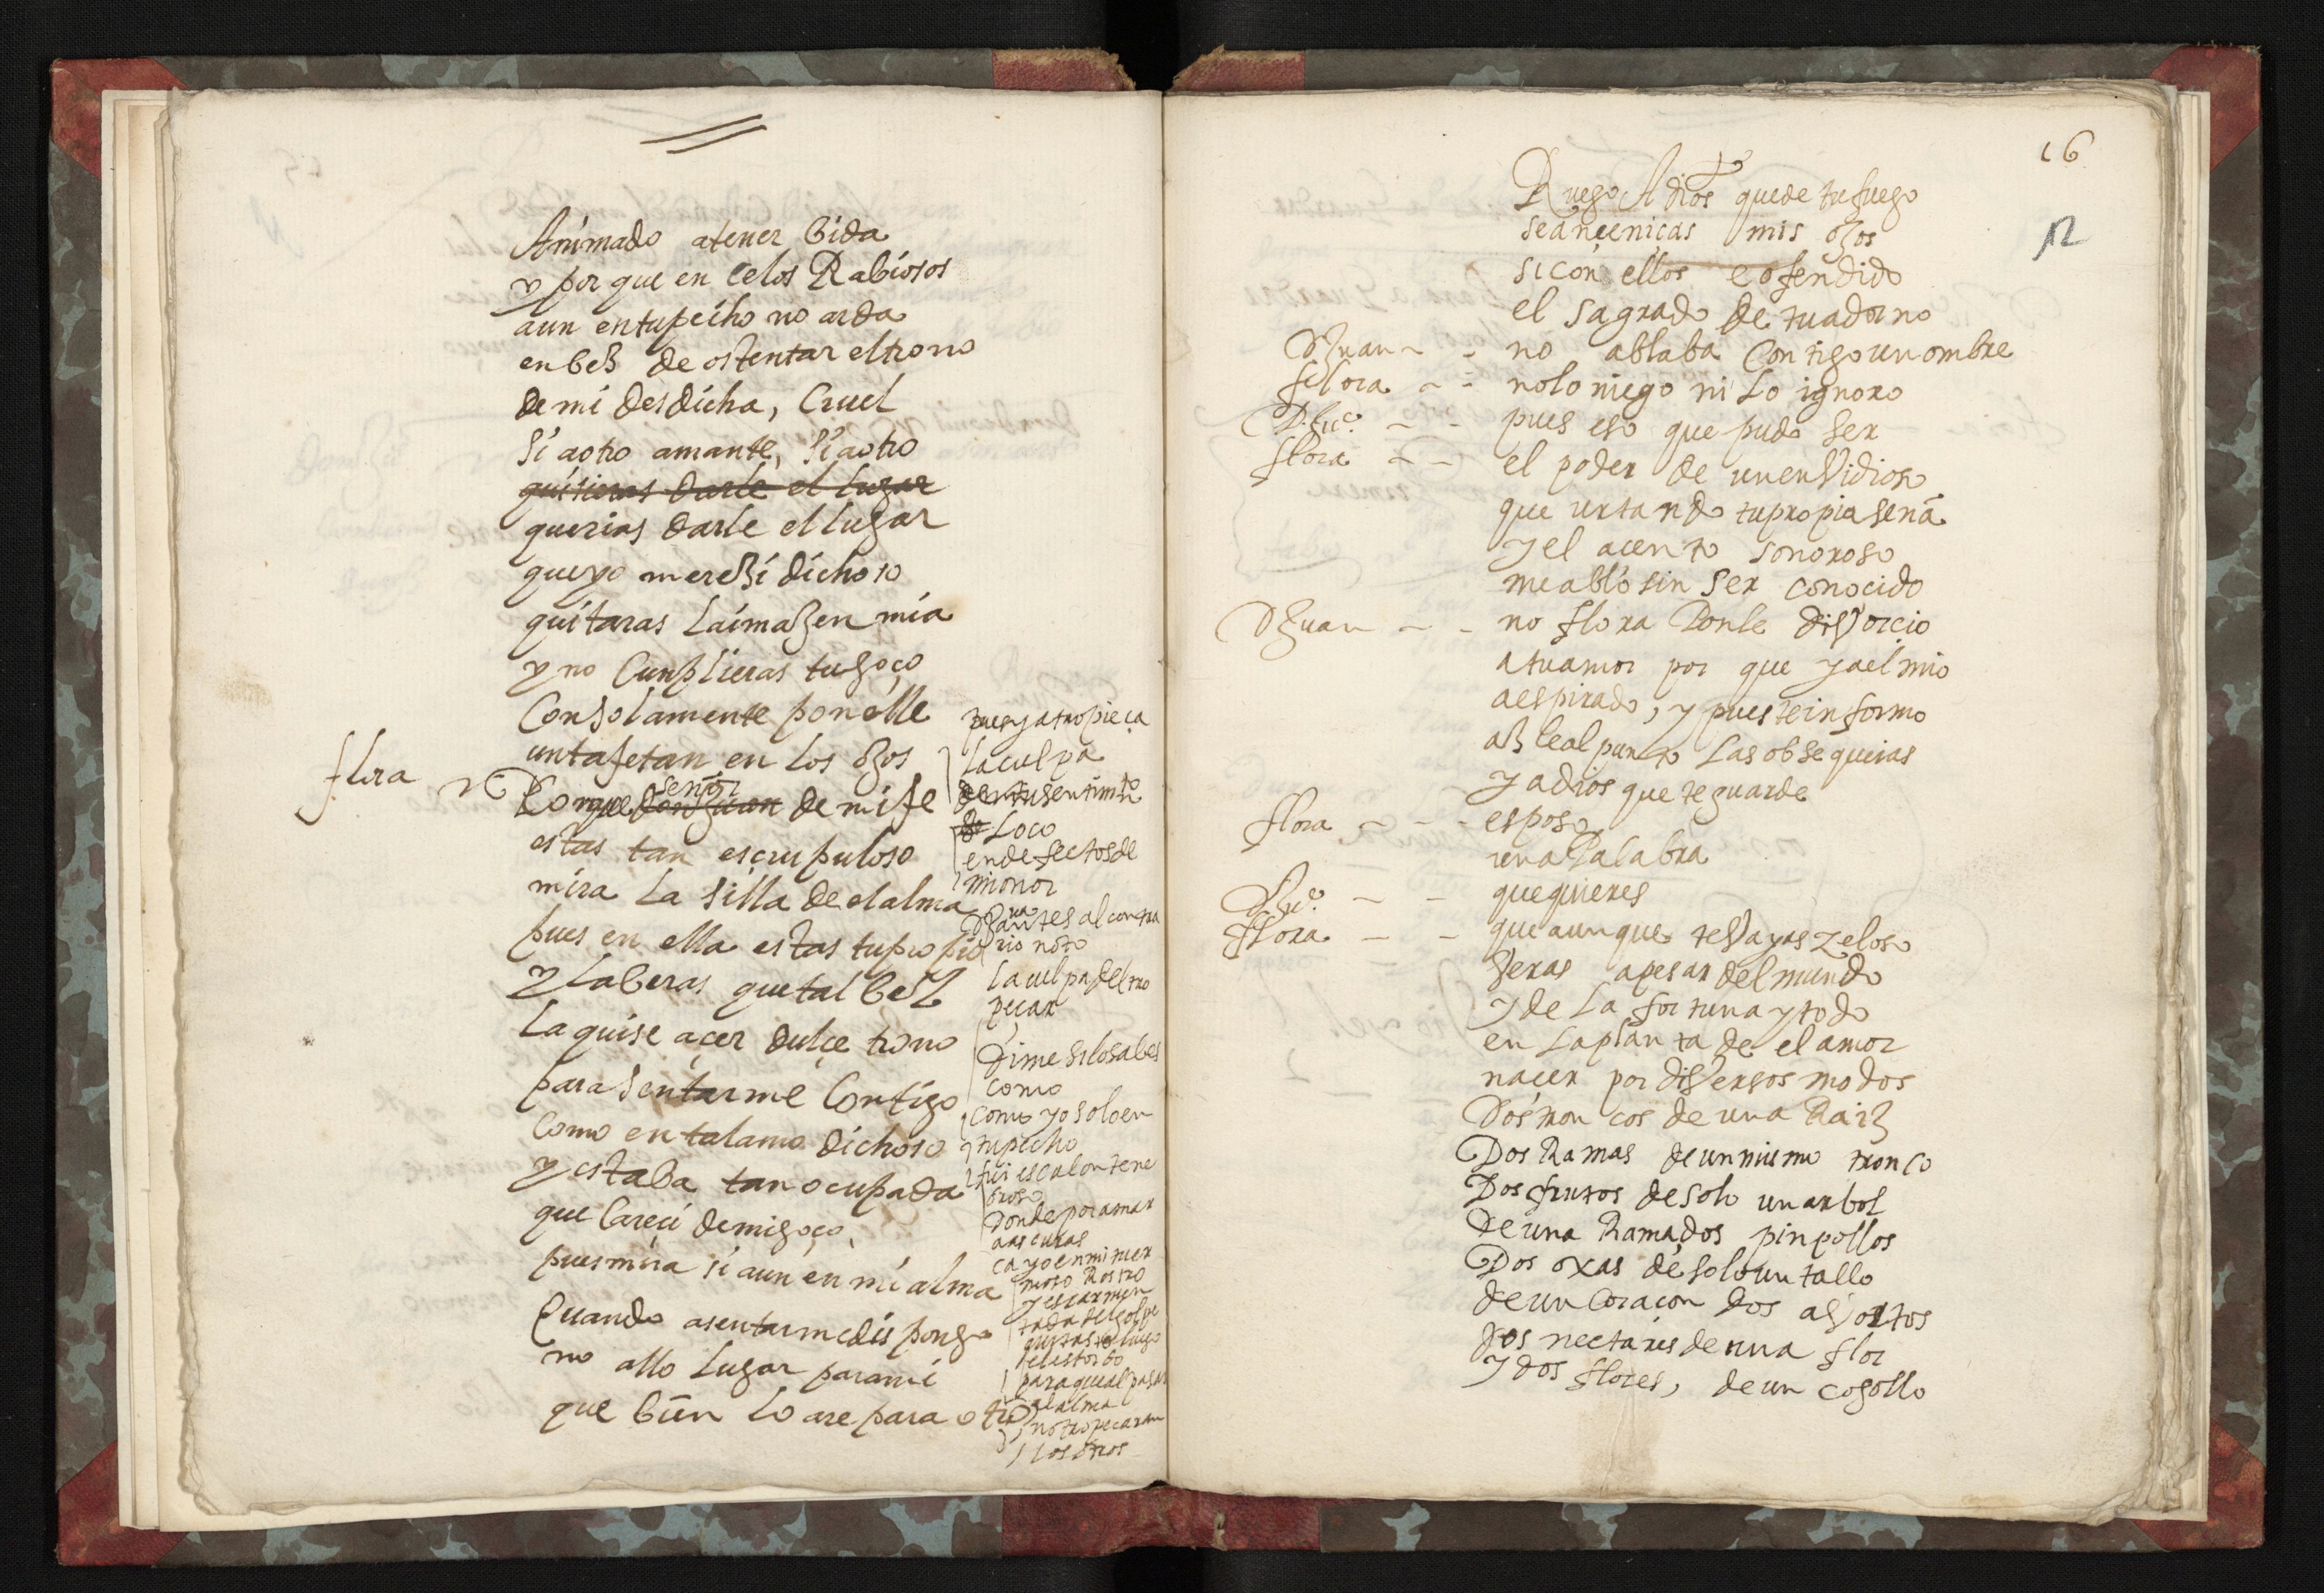 Animado atener bida
y por que en celos Rabiosos
aun entupecho no arda
enbes de ostentar eltrono
de mi desdicha, Cruel
si aotro amante, si aotro
quisieras darle el lugar
querias darle ellugar
queyo meresi dichoso
quitaras Laimagen mia
y no Cunplieras tugoço
Consolamente ponelle
untafetan en los ojos
flora
Porque don Juan señor de mi fe
estas tan escrupuloso
mira La silla de elalma
pues en ella estas tupropio
y Laberas quetal bes
La quise açer dulçe trono
para sentarme Contigo
Como en talamo dichoso
y estaba tan ocupada
que Careci demigoço
puesmira si aun en mi alma
Quando asentarmedispongo
no allo Lugar parami
que bien lo are para otro
puesyatropieça
Laculpa
dentusentimto
Loco
endefectosde
mionor
antes alcontra
rio noto
Laculpadeltro
peçar
Dime silosabes
como
como yo soloen
tupecho
fui escalontene
broso
donde poramar
aascuras
cayoenmi
moso Rostro
yescarmen
tada delgolpe
quitasteluego
elestorbo
paraquealpasar
elalma
notropecaran
los otros
16
12
Ruego A dios quede tufuego
seançeniças mis ojos
sicon ellos e ofendido
el sagrado de tuadorno
DJuan - - no ablaba Contigo unombre
flora - - nolo niego ni Lo ignoro
D. Juo. - - pues eso que pudo ser
flora - - el poder de unenvidioso
que urtando tupropia seña
y el acento sonoroso
meablo sin ser conocido
DJuan - - no flora Ponle divorcio
atuamor por que yaelmio
aespirado, y puesteinformo
asleal punto Las obsequias
y adios que teguarde
flora - - - esposo
unaPalabra
D. Juo. - - quequieres
flora - - que aunque tevayas zeloso
seras apesar delmundo
y de La fortuna ytodo
en Laplanta de el amor
nacer por diversos modos
Dos tron cos de una Raiz
Dos Ramas deunmismo tronco
Dos frutos desolo unarbol
De una Rama dos pinpollos
Dos oxas de solo un tallo
de un Coraçon dos
dos nectares de una flor
y dos flores, de un cogollo